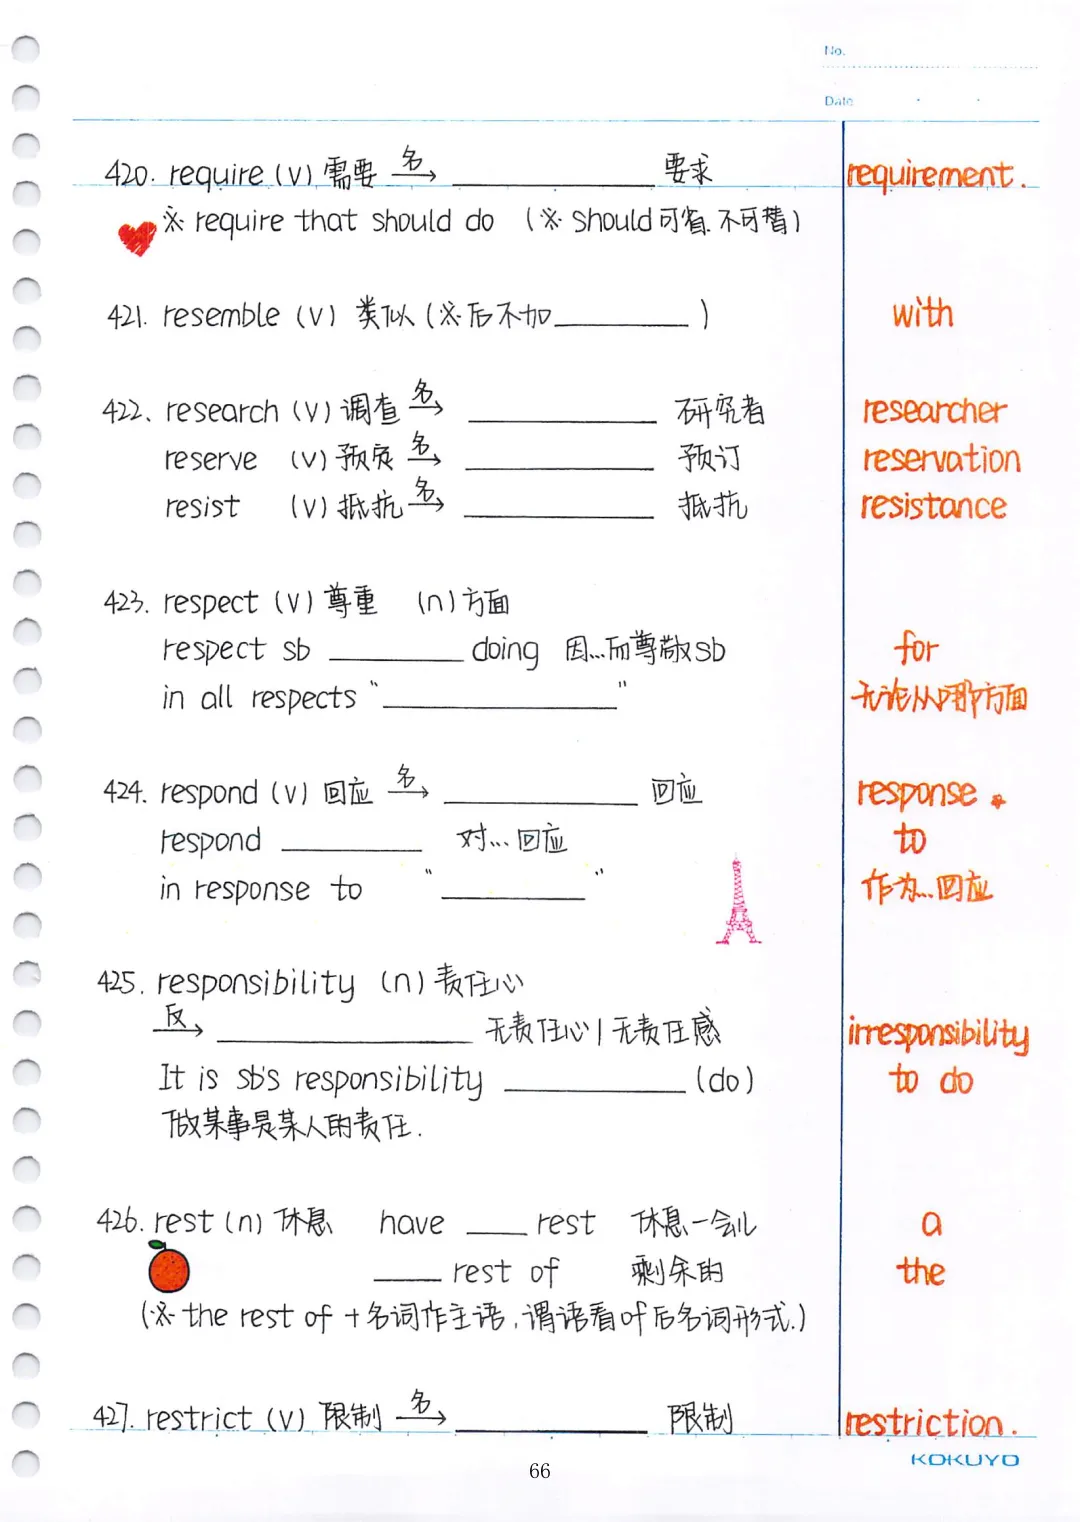 No.
Date
420. require (v) 需要 名→ ____ 要求 requirement.
※ require that should do (※ should可省.不可替)
421. resemble (v) 类似 (※后不加____) with
422. research (v) 调查 名→ ____ 研究者 researcher
reserve (v) 预定 名→ ____ 预订 reservation
resist (v) 抵抗 名→ ____ 抵抗 resistance
423. respect (v) 尊重 (n) 方面
respect sb ____ doing 因...而尊敬sb for
in all respects "____" 无论从哪方面
424. respond (v) 回应 名→ ____ 回应 response.
respond ____ 对...回应 to
in response to "____" 作为...回应
425. responsibility (n) 责任心
反→ ____ 无责任心/无责任感 irresponsibility
It is sb's responsibility ____ (do) to do
做某事是某人的责任.
426. rest (n) 休息 have ____ rest 休息一会儿 a
____ rest of 剩余的 the
(※ the rest of +名词作主语,谓语看of后名词形式.)
427. restrict (v) 限制 名→ ____ 限制 restriction.
KOKUYO
66